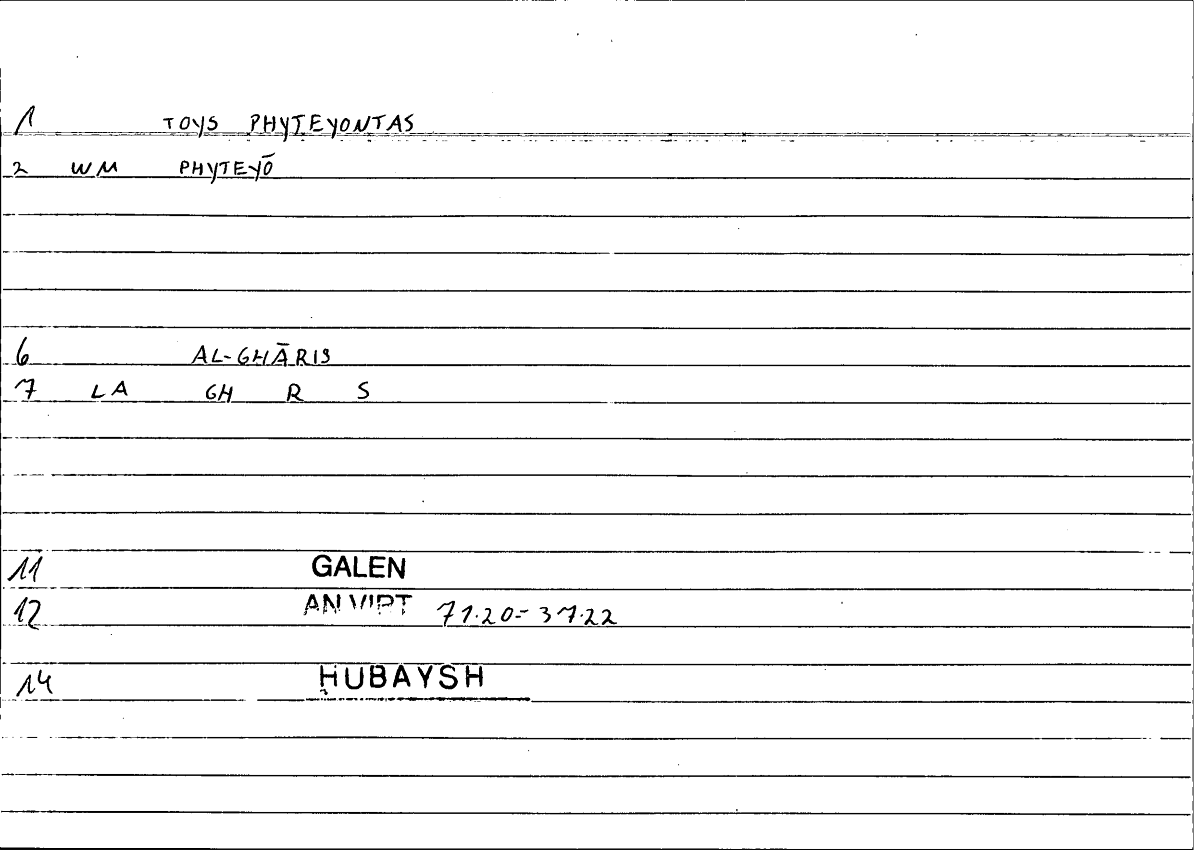 1 TOYS PHYTEYONTAS
2 WM PHYTEYŌ
6 AL-GHĀRIS
7 LA GH R S
11 GALEN
12 AN VIRT 71.20 = 37.22
14 ḤUBAYSH